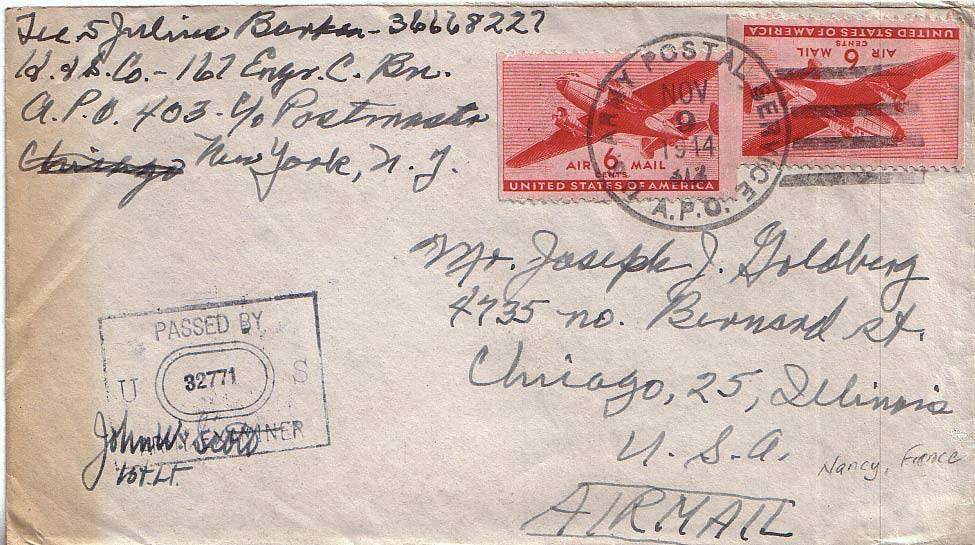 Tec 5 Julius Barken - 36668227
H. & S. Co. - 167 Engr. C. Bn.
A.P.O. 403 - c/o Postmaster
Chicago New York, N.Y.
U.S. ARMY POSTAL SERVICE
NOV
9
1944
A.P.O.
6
CENTS
AIR MAIL
UNITED STATES OF AMERICA
6
CENTS
AIR MAIL
UNITED STATES OF AMERICA
Mr. Joseph J. Goldberg
4735 no. Bernard st.
Chicago, 25, Illinois
U.S.A.
Nancy, France
AIRMAIL
PASSED BY
U 32771 S
ARMY EXAMINER
John W.
1st Lt.